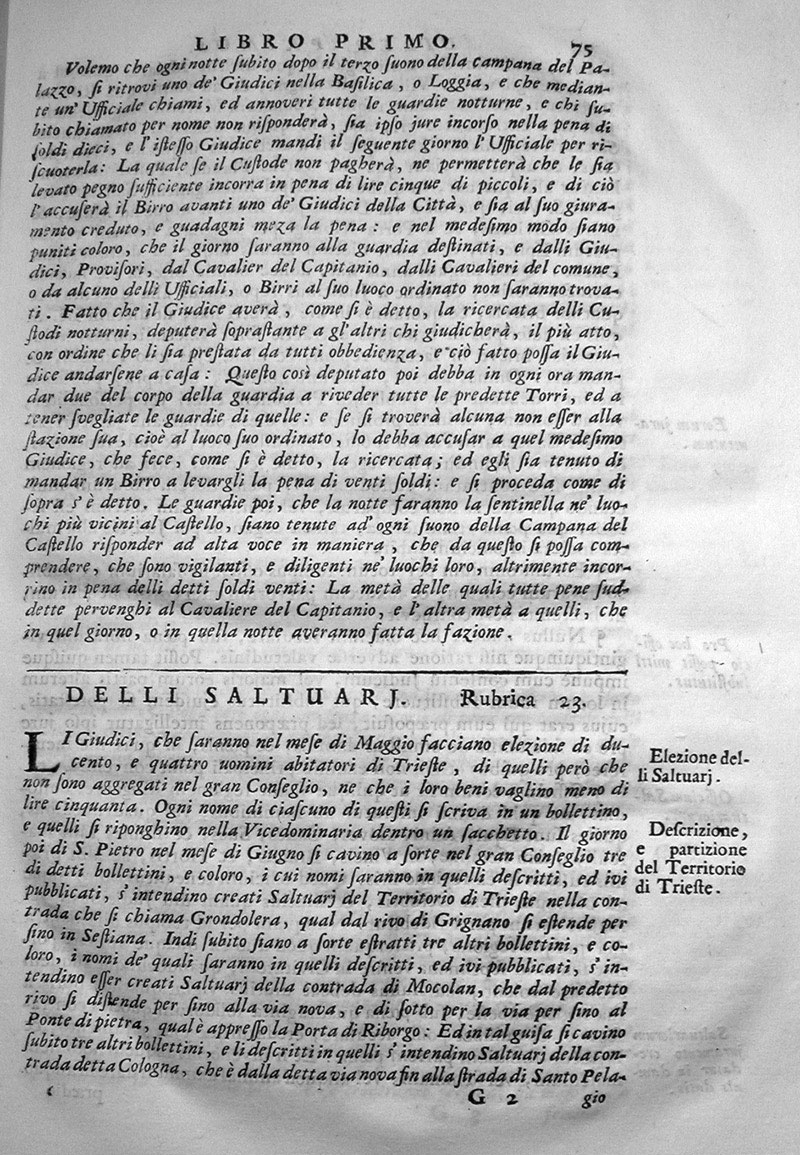 LIBRO PRIMO. 75
Volemo che ogni notte ſubito dopo il terzo ſuono della Campana del Pa-
lazzo, ſi ritrovi uno de' Giudici nella Baſilica, o Loggia, e che median-
te un' Ufficiale chiami, ed annoveri tutte le guardie notturne, e chi ſu-
bito chiamato per nome non riſponderà, ſia ipſo jure incorſo nella pena di
ſoldi dieci, e l'iſteſſo Giudice mandi il ſeguente giorno l'Ufficiale per ri-
ſcuoterla: La quale ſe il Cuſtode non pagherà, ne permetterà che le ſia
levato pegno ſufficiente incorra in pena di lire cinque di piccoli, e di ciò
l'accuſerà il Birro avanti uno de' Giudici della Città, e ſia al ſuo giura-
mento creduto, e guadagni meza la pena: e nel medeſimo modo ſiano
puniti coloro, che il giorno ſaranno alla guardia deſtinati, e dalli Giu-
dici, Proviſori, dal Cavalier del Capitanio, dalli Cavalieri del comune,
o da alcuno delli Ufficiali, o Birri al ſuo luoco ordinato non ſaranno trova-
ti. Fatto che il Giudice averà, come ſi è detto, la ricercata delli Cu-
ſtodi notturni, deputerà ſopraſtante a gl'altri chi giudicherà, il più atto,
con ordine che li ſia preſtata da tutti obbedienza, e ciò fatto poſſa il Giu-
dice andarſene a caſa: Queſto così deputato poi debba in ogni ora man-
dar due del corpo della guardia a riveder tutte le predette Torri, ed a
tener ſvegliate le guardie di quelle: e ſe ſi troverà alcuna non eſſer alla
ſtazione ſua, cioè al luoco ſuo ordinato, lo debba accuſar a quel medeſimo
Giudice, che fece, come ſi è detto, la ricercata; ed egli ſia tenuto di
mandar un Birro a levargli la pena di venti ſoldi: e ſi proceda come di
ſopra s'è detto. Le guardie poi, che la notte faranno la ſentinella ne' luo-
chi più vicini al Caſtello, ſiano tenute ad' ogni ſuono della Campana del
Caſtello riſponder ad alta voce in maniera, che da queſto ſi poſſa com-
prendere, che ſono vigilanti, e diligenti ne' luochi loro, altrimente incor-
rino in pena delli detti ſoldi venti: La metà delle quali tutte pene ſud-
dette pervenghi al Cavaliere del Capitanio, e l'altra metà a quelli, che
in quel giorno, o in quella notte averanno fatta la fazione.
DELLI SALTUARJ. Rubrica 23.
LI Giudici, che ſaranno nel meſe di Maggio facciano elezione di du-
cento, e quattro uomini abitatori di Trieſte, di quelli però che
non ſono aggregati nel gran Conſeglio, ne che i loro beni vaglino meno di
lire cinquanta. Ogni nome di ciaſcuno di queſti ſi ſcriva in un bollettino,
e quelli ſi riponghino nella Vicedominaria dentro un ſacchetto. Il giorno
poi di S. Pietro nel meſe di Giugno ſi cavino a ſorte nel gran Conſeglio tre
di detti bollettini, e coloro, i cui nomi ſaranno in quelli deſcritti, ed ivi
pubblicati, s'intendino creati Saltuarj del Territorio di Trieſte nella con-
trada che ſi chiama Grondolera, qual dal rivo di Grignano ſi eſtende per
ſino in Seſtiana. Indi ſubito ſiano a ſorte eſtratti tre altri bollettini, e co-
loro, i nomi de' quali ſaranno in quelli deſcritti, ed ivi pubblicati, s'in-
tendino eſſer creati Saltuarj della contrada di Mocolan, che dal predetto
rivo ſi diſtende per ſino alla via nova, e di ſotto per la via per ſino al
Ponte di pietra, qual è appreſſo la Porta di Riborgo: Ed in tal guiſa ſi cavino
ſubito tre altri bollettini, e li deſcritti in quelli s'intendino Saltuarj della con-
trada detta Cologna, che è dalla detta via nova fin alla ſtrada di Santo Pela-
G 2 gio
Elezione del-
li Saltuarj.
Deſcrizione,
e partizione
del Territorio
di Trieſte.